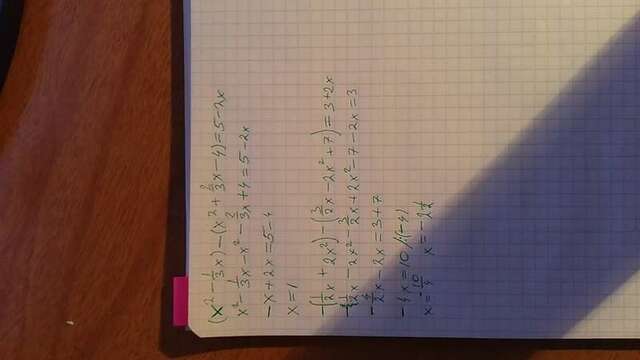 (x² - 1/3x) - (x² + 2/3x - 4) = 5 - 2x
x² - 1/3x - x² - 2/3x + 4 = 5 - 2x
-x + 2x = 5 - 4
x = 1
-(1/2x + 2x²) - (3/2x - 2x² + 7) = 3 + 2x
-1/2x - 2x² - 3/2x + 2x² - 7 - 2x = 3
-4/2x - 2x = 3 + 7
-4x = 10 /:(-4)
x = -10/4 x = -2 1/2